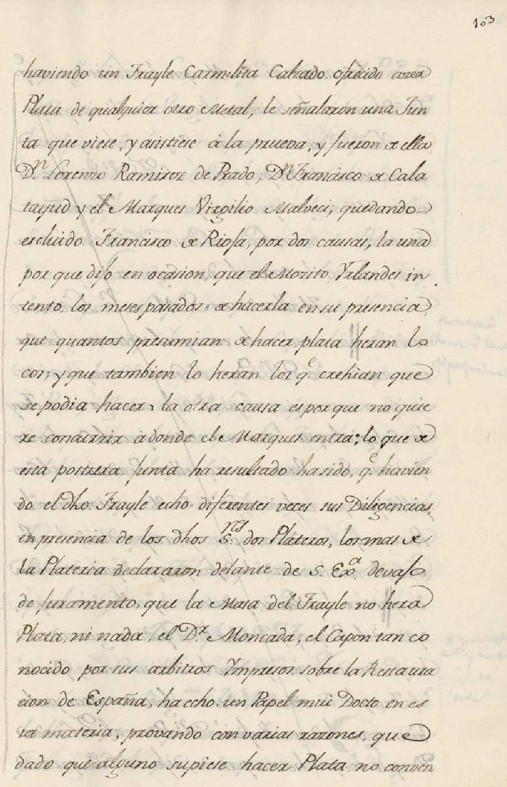 103
haviendo un Frayle Carmelita Calzado ofrecido acer
Plata de qualquier otro Metal, le señalaron una Jun
ta que viese, y asistiese à la prueva, y fueron a ella
Dn. Lorenzo Ramirez de Prado, Dn. Francisco de Cala
tayud y el Marques Virgilio Malveci, quedando
escluido Francisco de Rioja, por dos causas, la una
por que dijo en ocasion, que el Morito Yrlandes in
tento, los meses pasados, de hacerla en su presencia,
que quantos presumian de hacer plata heran lo
cos, y que tambien lo heran los qe. crehian que
se podia hacer, la otra causa es por que no quie
re concurrir adonde el Marques entra; lo que de
esta postrera Junta ha resultado ha sido, qe. havien
do el dho Frayle echo diferentes veces sus Diligencias,
en presencia de los dhos S.res dos Plateros, los mas de
la Plateria declararon delante de S. Exa. devajo
de juramento, que la Masa del Frayle no hera
Plata, ni nada; el Dr. Moncada, el Capon tan co
nocido por sus arbitros Impresos sobre la Restaura
cion de España, ha echo un Papel mui Docto en es
ta materia, provando con varias razones, que
dado que alguno supiese hacer Plata, no conven